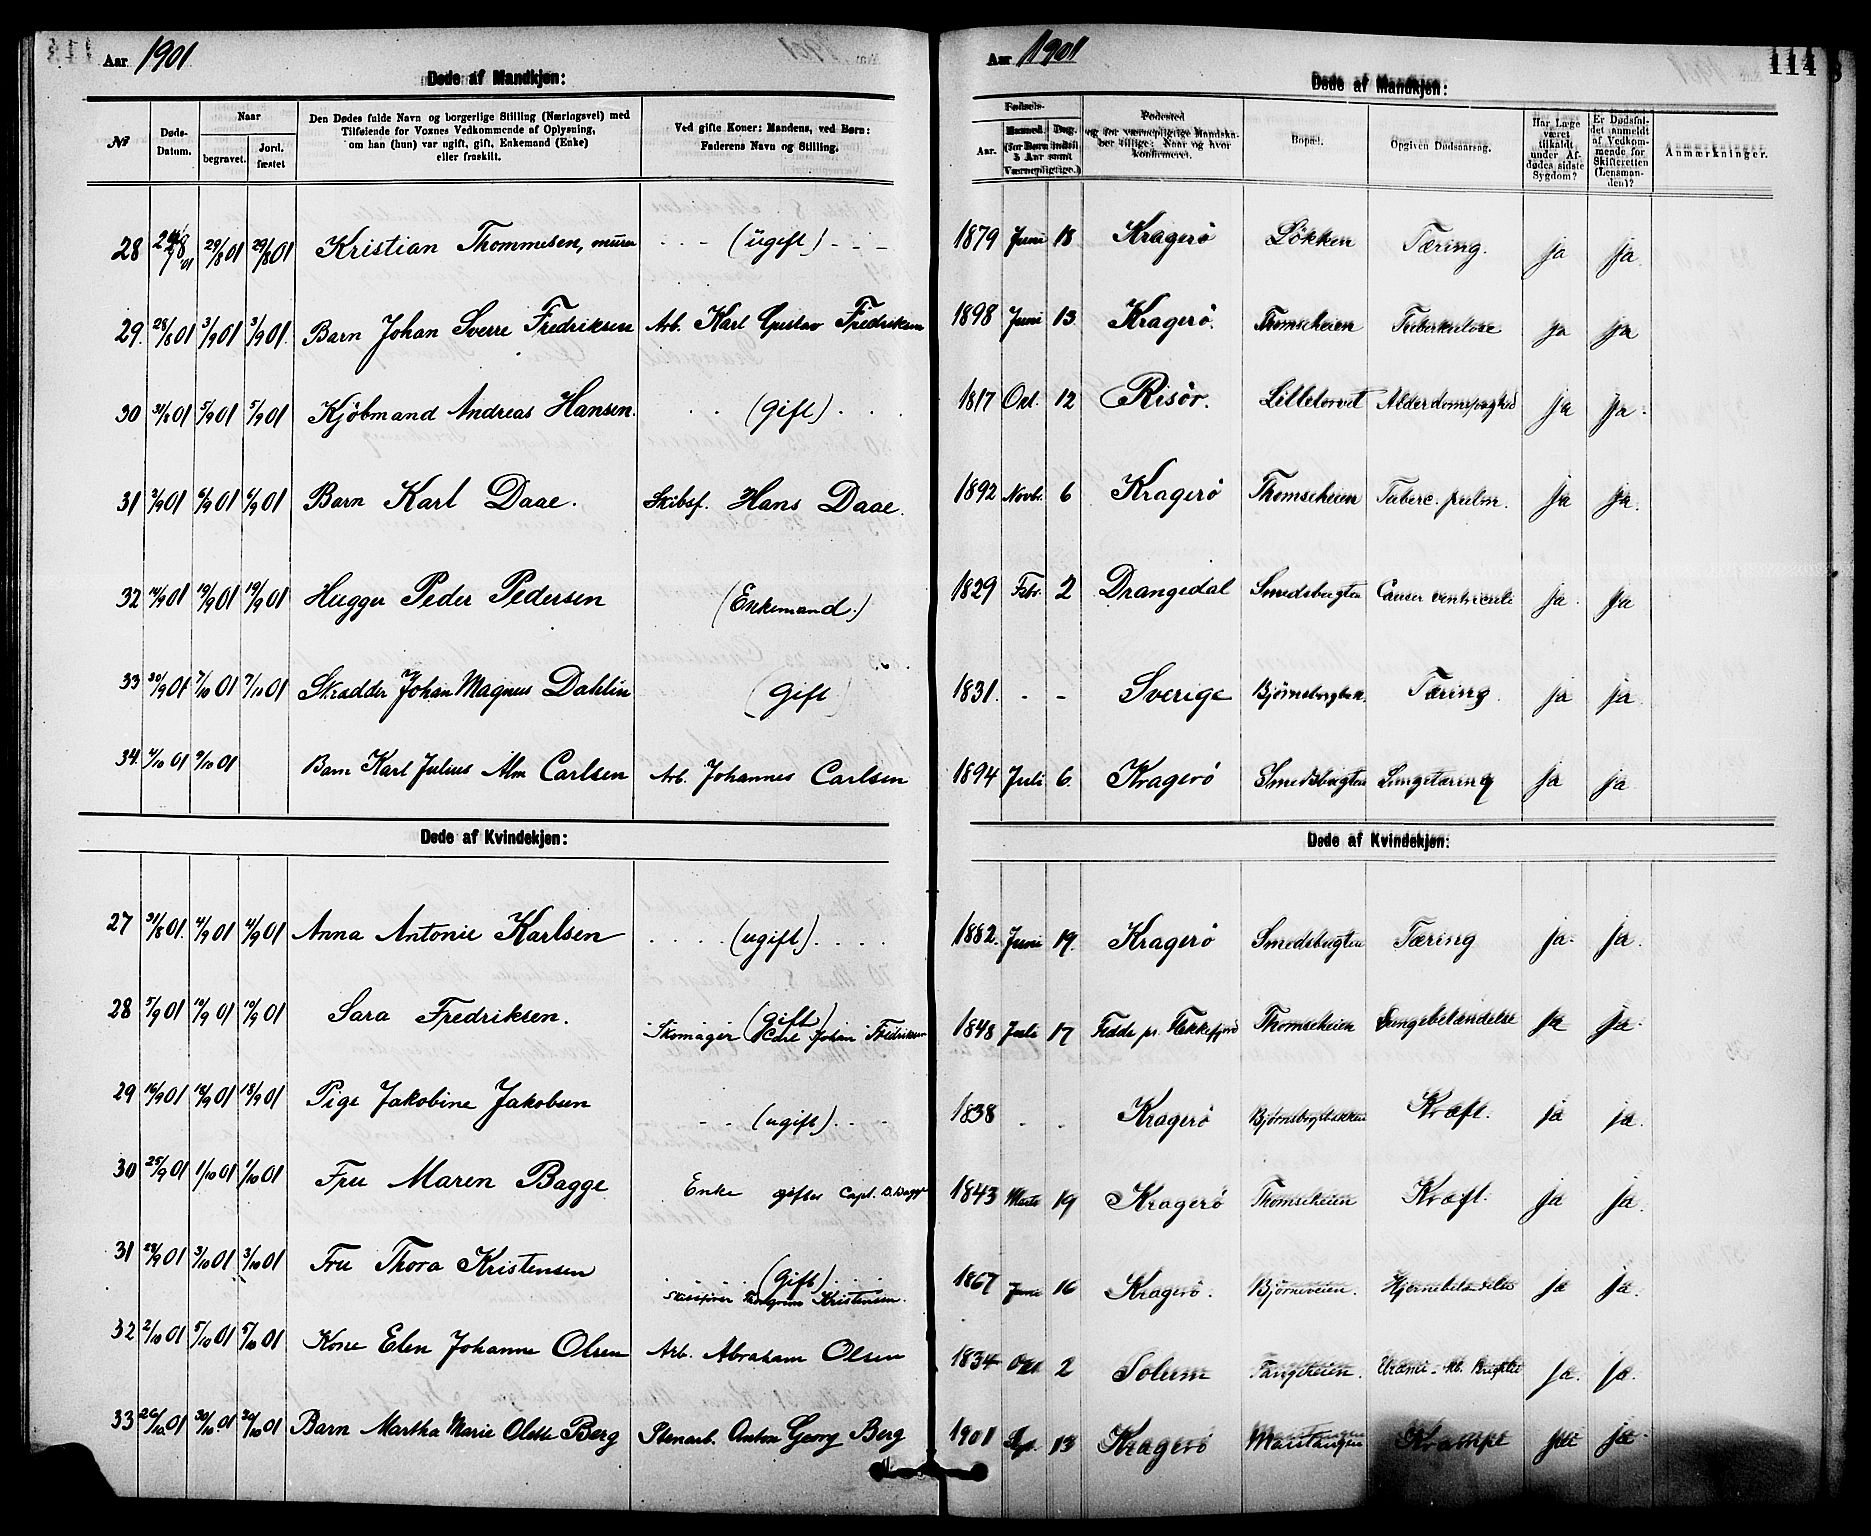 Aar 1901
Døde af Mandkjøn:
№
Døds-Datum.
Naar
begravet.
Jord. fæstet
Den Dødes fulde Navn og borgerlige Stilling (Næringsvei) med
Tilføiende for Voxnes Vedkommende af Oplysning,
om han (hun) var ugift, gift, Enkemand (Enke)
eller fraskilt.
Ved gifte Koner: Mandens, ved Børn:
Faderens Navn og Stilling.
28 29/8 01 29/8 01 Kristian Thommesen, murer - - - (ugift) - - -
29. 28/8 01 3/9 01 3/9 01. Barn Johan Sverre Fredriksen Arb. Karl Gustav Fredriksen
30 31/8 01 5/9 01 5/9 01 Kjöbmand Andreas Hansen. (gift)
31 2/9 01 6/9 01 6/9 01 Barn Karl Daae. Skibsf. Hans Daae.
32 14/9 01 19/9 01 19/9 01 Hugger Peder Pedersen (Enkemand.)
33 30/9 01 7/10 01 7/10 01 Skrædder Johan Magnus Dahlin (gift)
34. 4/10 01 9/10 01 Barn Karl Julius Alm Carlsen Arb. Johannes Carlsen
Døde af Kvindekjøn:
27 31/8 01. 4/9 01 4/9 01 Anna Antonie Karlsen (ugift)
28 5/9 01 10/9 01 10/9 01 Sara Fredriksen. (gift)
Skomager Carl Johan Fredriksen
29 16/9 01 18/9 01 18/9 01 Pige Jakobine Jakobsen - - (ugift) - -
30 25/9 01 1/10 01 1/10 01 Fru Maren Bagge Enke giftes Capt. B. Bagge
31 28/9 01 3/10 01 3/10 01 Fru Thora Kristensen (gift)
Kristensen.
32 2/10 01 5/10 01 5/10 01 Kone Elen Johanne Olsen Arb. Abraham Olsen
33 26/10. 01 30/10. 01 30/10 01 Barn Martha Marie Olette Berg Stenarb. Anton Georg Berg
Aar 1901
114
Døde af Mandkjøn:
Fødsels-
Aar.
Maaned. (for Børn indtil 5 Aar samt Værnepligtige.)
Dag.
Fødested
og for værnepligtige Mandska-
ber tillige: Naar og hvor
konfirmeret.
Bopæl.
Opgiven Dødsaarsag.
Har Læge
været
tilkaldt
under Af-
dødes sidste
Sygdom?
Er Dødsfal-
det anmeldt
af Vedkom-
mende for
Skifteretten
(Lensman-
den)?
Anmærkninger.
1879 Juni 18 Kragerö Lökken Tæring. ja ja.
1898 Juni 13 Kragerö. Thomseheien Tuberkulose ja ja
1817 Okt. 12 Risör. Lilletorvet Alderdomssvaghed ja ja.
1892 Novbr. 6 Kragerö Thomseheien Tuberc. pulm. ja ja.
1829 Febr. 2 Drangedal Smedsbugten Cancer ventriculi ja ja
1831. - - Sverige Tæring. ja ja.
1894 Juli 6. Kragerö Smedsbugten Lungetæring ja ja
Døde af Kvindekjøn:
1882. Juni 19. Kragerö Smedsbugten Tæring ja. ja.
1848 Juli 17 Fedde pr. Flekkefjord Thomseheien Lungebetændelse ja ja.
1838 - - Kragerö Bjørnsbogbakken Kræft. ja ja.
1843 Marts 19 Kragerö Thomseheien Kræft. ja ja.
1867 Juni 16 Kragerö. Bjørneveien. Hjernebetændelse ja ja.
1834 Okt. 2 Solum Tangeheien. Uræmi - Mb. Brightii ja. ja.
1901 Sept. 13 Kragerö Martangen Krampe ja ja.